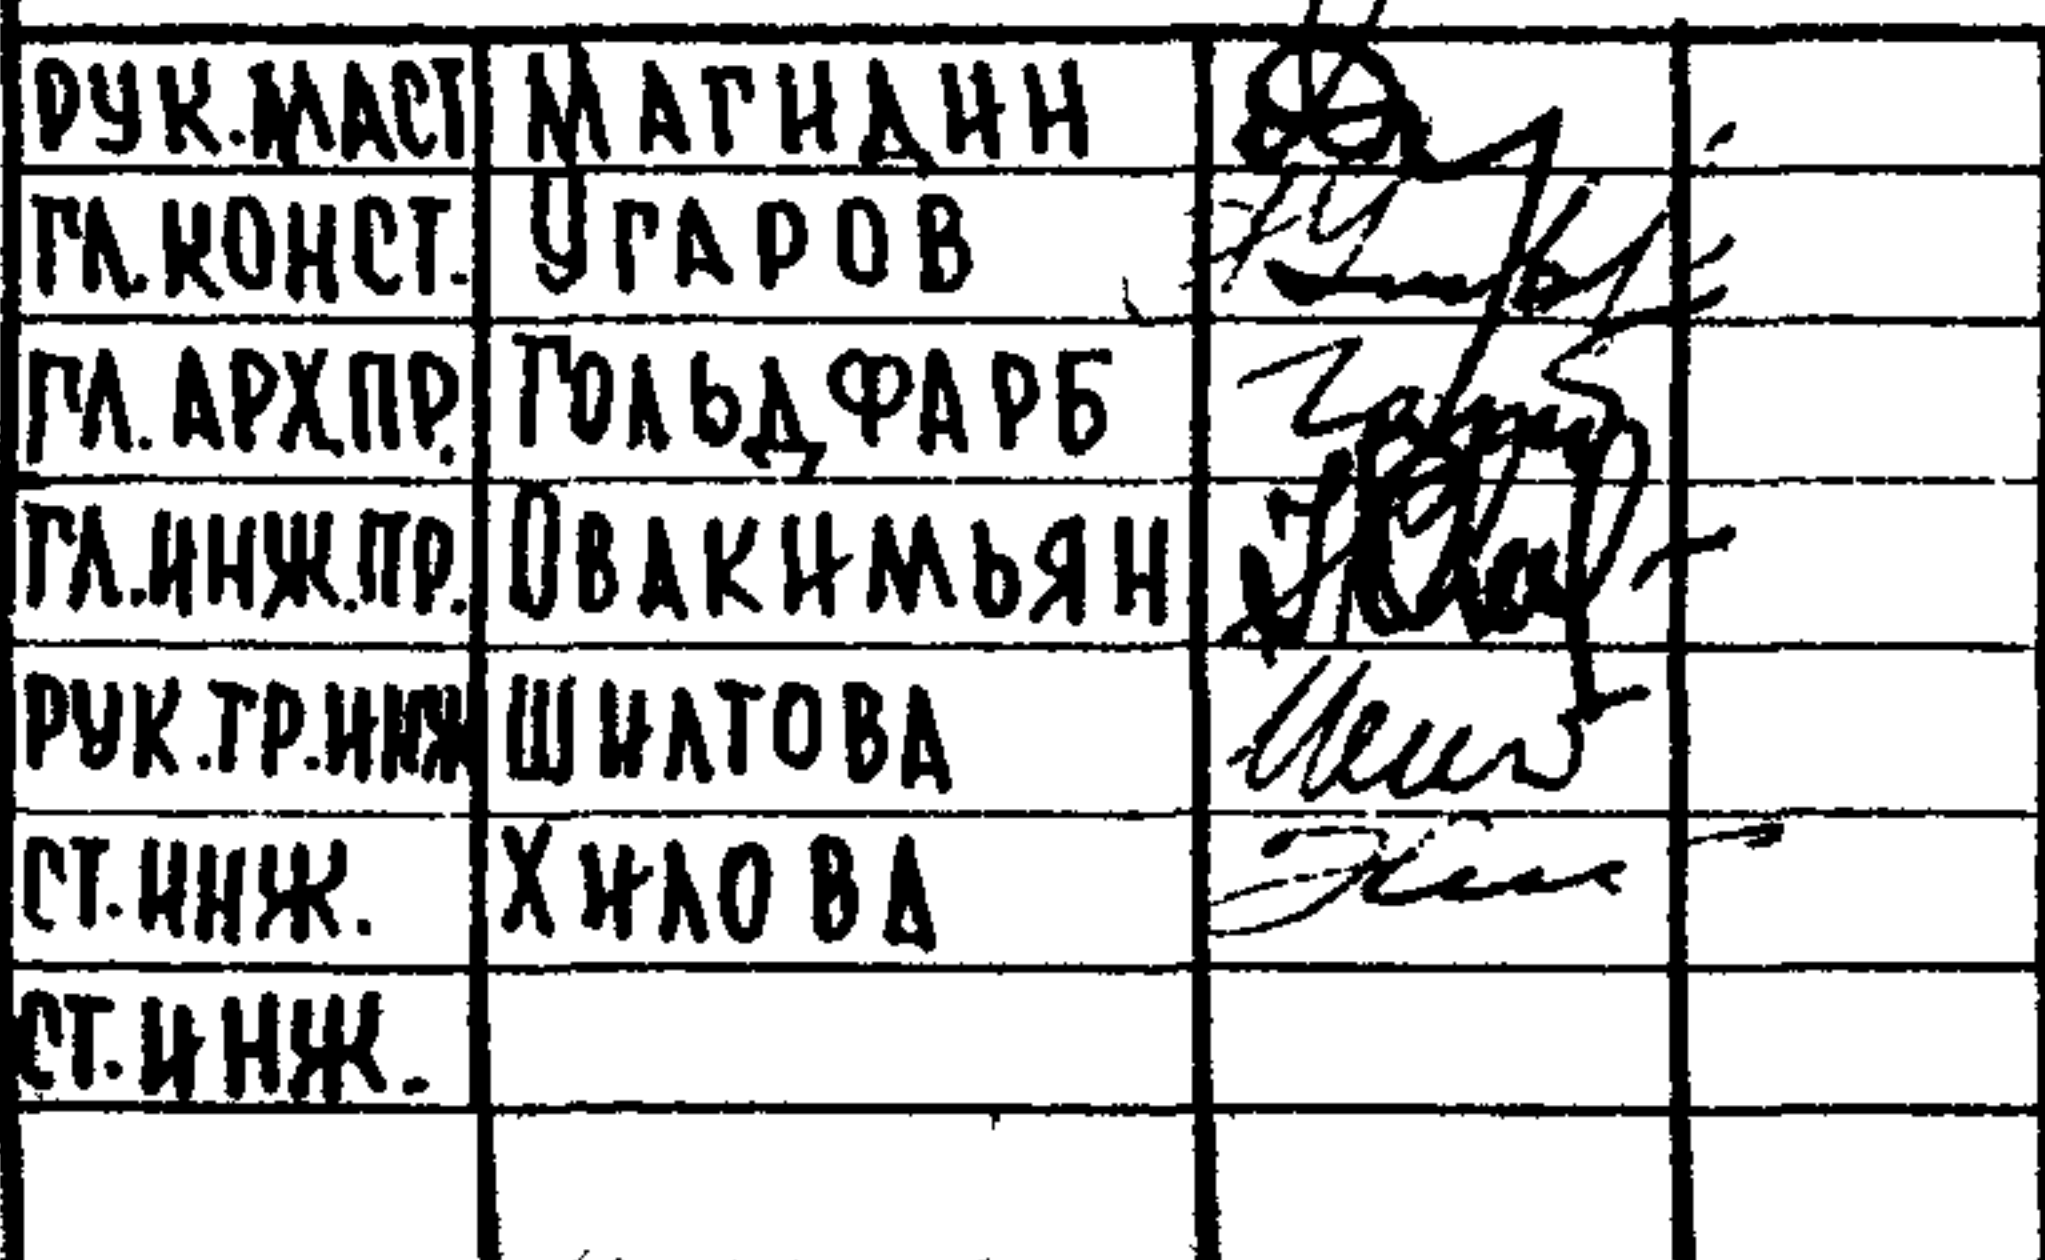 РУК.МАСТ МАГИДИН
ГЛ.КОНСТ. УГАРОВ
ГЛ.АРХ.ПР. ГОЛЬДФАРБ
ГЛ.ИНЖ.ПР. ОВАКИМЬЯН
РУК.ГР.ИНЖ ШИЛТОВА
СТ.ИНЖ. ХИЛОВА
СТ.ИНЖ.